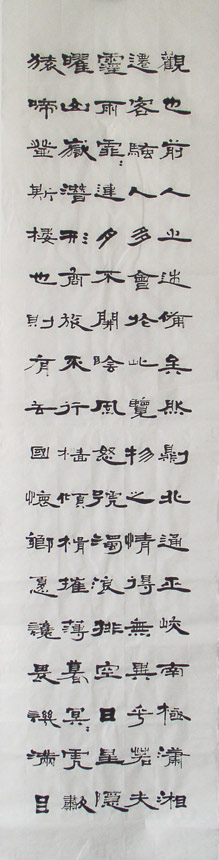 觀也前人之述備矣然則北通巫峽南極瀟湘
遷客騷人多會於此覽物之情得無異乎若夫
霪雨霏〻連月不開陰風怒號濁浪排空日星隱
曜山嶽潛形商旅不行檣傾楫摧薄暮冥〻虎嘯
猿啼登斯樓也則有去國懷鄉憂讒畏譏滿目